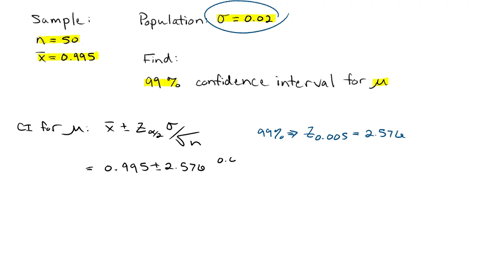 Sample: Population: σ = 0.02
n = 50
x̄ = 0.995
Find:
99% confidence interval for μ
CI for μ: x̄ ± Z_{α/2} σ/√n
99% ⇒ Z_{0.005} = 2.576
= 0.995 ± 2.576